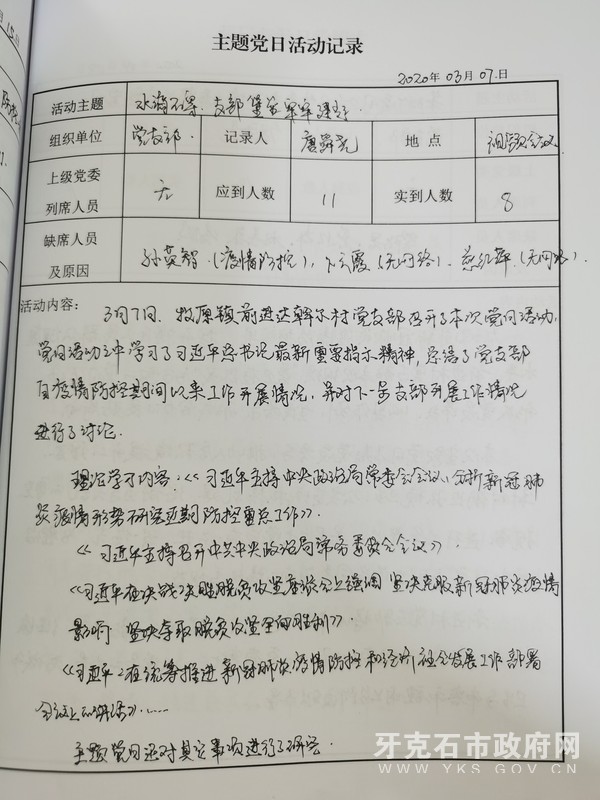 主题党日活动记录
2020年 03月 07日
活动主题
组织单位 党支部 记录人 唐舜尧 地点 视频会议
上级党委
列席人员 无 应到人数 11 实到人数 8
缺席人员
及原因 孙英智（疫情防控），卜云霞（无网络）
活动内容： 3月7日，牧原镇前进达斡尔村党支部召开了本次党日活动，
党日活动中学习了习近平总书记最新重要指示精神，总结了党支部
自疫情防控期间以来工作开展情况，并对下一步支部开展工作情况
进行了讨论.
理论学习内容：《习近平主持中央政治局常委会会议，分析新冠肺
炎疫情形势研究近期防控重点工作》.
《习近平主持召开中共中央政治局常务委员会会议》.
《习近平在决战决胜脱贫攻坚座谈会上强调 坚决克服新冠肺炎疫情
影响 坚决夺取脱贫攻坚全面胜利》.
《习近平：在统筹推进新冠肺炎疫情防控和经济社会发展工作部署
会议上的讲话》......
主题党日还对其它事项进行了研究.
牙克石市政府网
WWW.YKS.GOV.CN